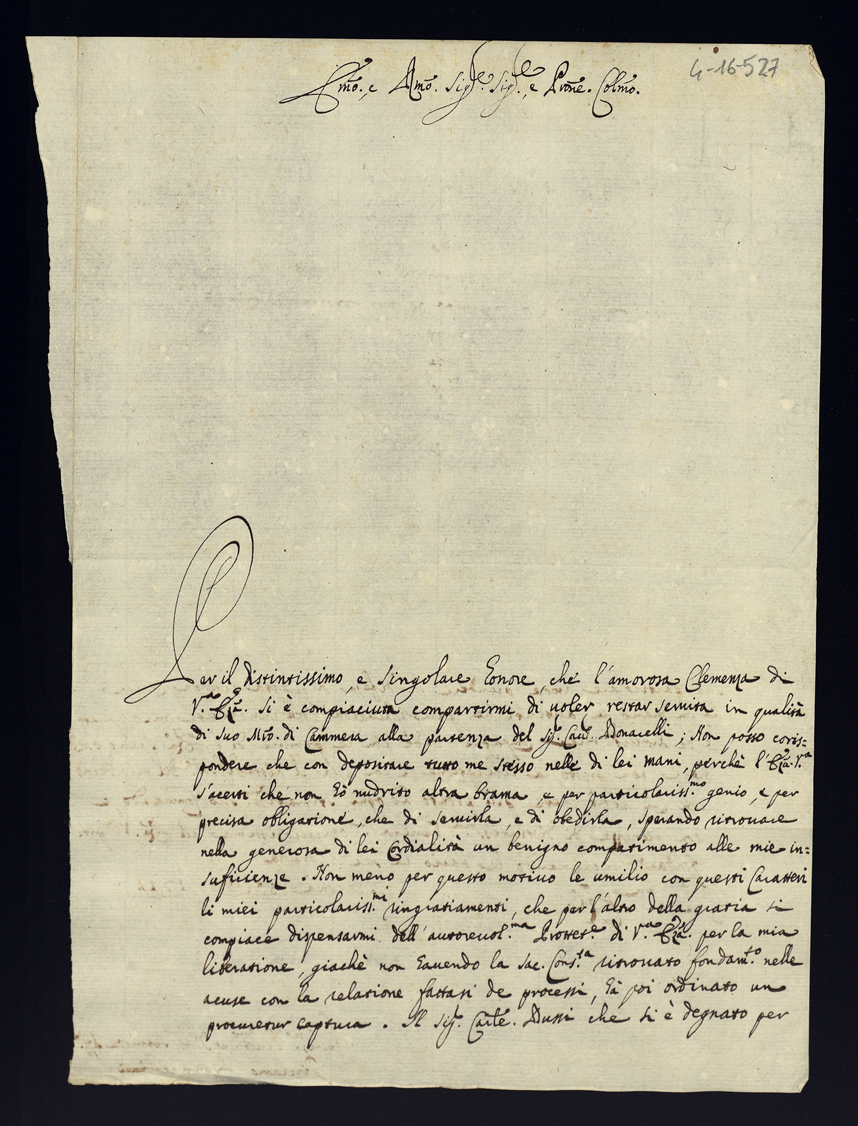 4-16-527
Em̃o. e Rm̃o. Sig.e Sig.e, e Prõne. Colm̃o.
Per il distintissimo, e singolare Eonore, che l'amorosa Clemenza di
V.ra Em̃za. si è compiaciuta compartirmi, di voler restar servita in qualità
di suo Mro. di Cammera alla partenza del Sig.r Cau.r Donacelli; Non posso coris=
pondere che con depositare tutto me stesso nelle di lei mani, perchè l'Em̃za. V.ra
s'acerti che non Eò nudrito altra brama, e per particolariss.mo genio, e per
precisa obligatione, che di servirla, e di obedirla, sperando ritrovare
nella generosa di lei Cordialità un benigno compatimento alle mie in=
suficienze. Non meno per questo motivo le umilio con questi Caratteri
li miei particolariss.mi ringratiamenti, che per l'altro della gratia si
compiace dispensarmi dell'autorevol.ma Protett.e di V.ra Em̃za. per la mia
liberatione, giachè non Eavendo la Sac. Cons.ta ritrovato fondam.to nelle
acuse con la relatione fattasi de processi, Eà poi ordinato un
procuretur captura. Il Sig.r Carle. Bussi che si è degnato per